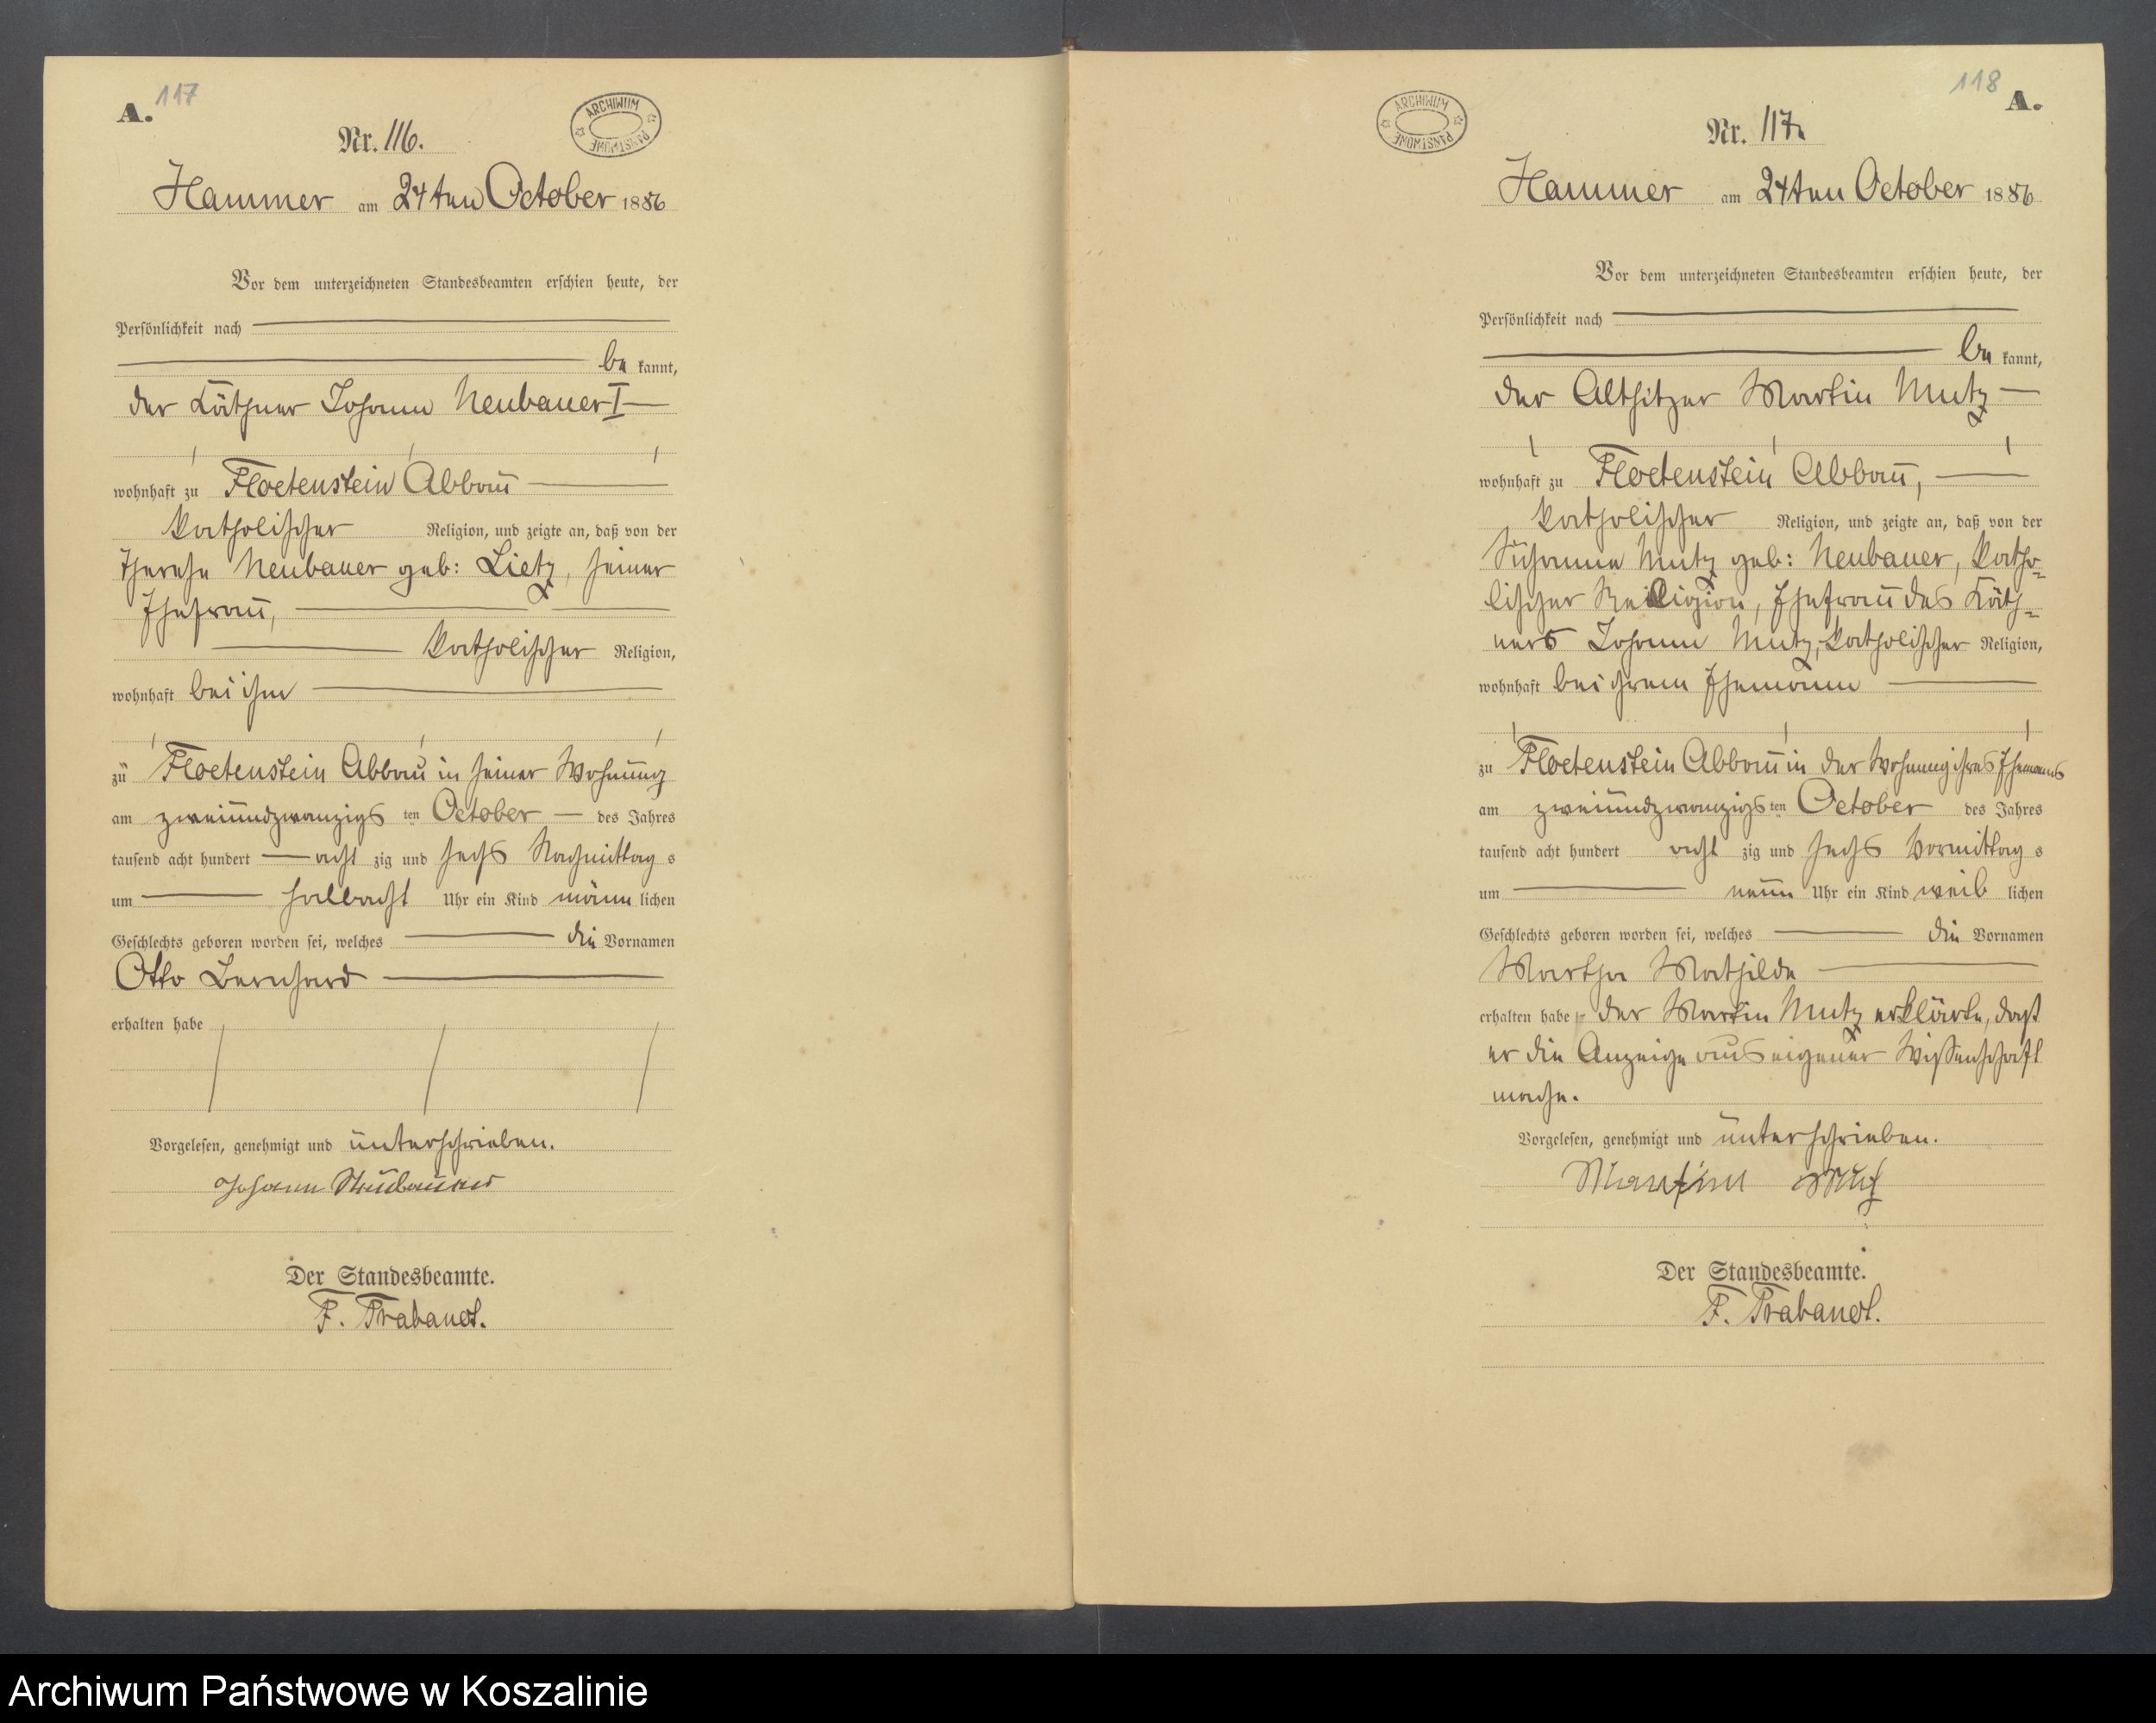 117
A.
ARCHIWUM PAŃSTWOWE
Nr. 116.
Hammer am 24ten October 1886
Vor dem unterzeichneten Standesbeamten erschien heute, der
Persönlichkeit nach
be kannt,
der Käthner Johann Neubauer I
wohnhaft zu Floetenstein Abbau
katholischer Religion, und zeigte an, daß von der
Therese Neubauer geb: Lietz, seiner
Ehefrau,
katholischer Religion,
wohnhaft bei ihm
zu Floetenstein Abbau in seiner Wohnung
am zweiundzwanzigs ten October des Jahres
tausend acht hundert acht zig und sechs Nachmittag s
um halbacht Uhr ein Kind männ lichen
Geschlechts geboren worden sei, welches die Vornamen
Otto Bernhard
erhalten habe
Vorgelesen, genehmigt und unterschrieben.
Johann Neubauer
Der Standesbeamte.
F. Trabandt.
118
A.
ARCHIWUM PAŃSTWOWE
Nr. 117.
Hammer am 24ten October 1886
Vor dem unterzeichneten Standesbeamten erschien heute, der
Persönlichkeit nach
be kannt,
der Altsitzer Martin Mutz
wohnhaft zu Floetenstein Abbau,
katholischer Religion, und zeigte an, daß von der
Susanna Mutz geb: Neubauer, katho-
lischer Religion, Ehefrau des Käth-
ners Johann Mutz, katholischer Religion,
wohnhaft bei ihrem Ehemann
zu Floetenstein Abbau in der Wohnung ihres Ehemanns
am zweiundzwanzigs ten October des Jahres
tausend acht hundert acht zig und sechs Vormittag s
um neun Uhr ein Kind weib lichen
Geschlechts geboren worden sei, welches die Vornamen
Martha Mathilde
erhalten habe der Martin Mutz erklärte, daß
er die Anzeige aus eigener Wissenschaft
mache.
Vorgelesen, genehmigt und unterschrieben.
Martin Mutz
Der Standesbeamte.
F. Trabandt.
Archiwum Państwowe w Koszalinie